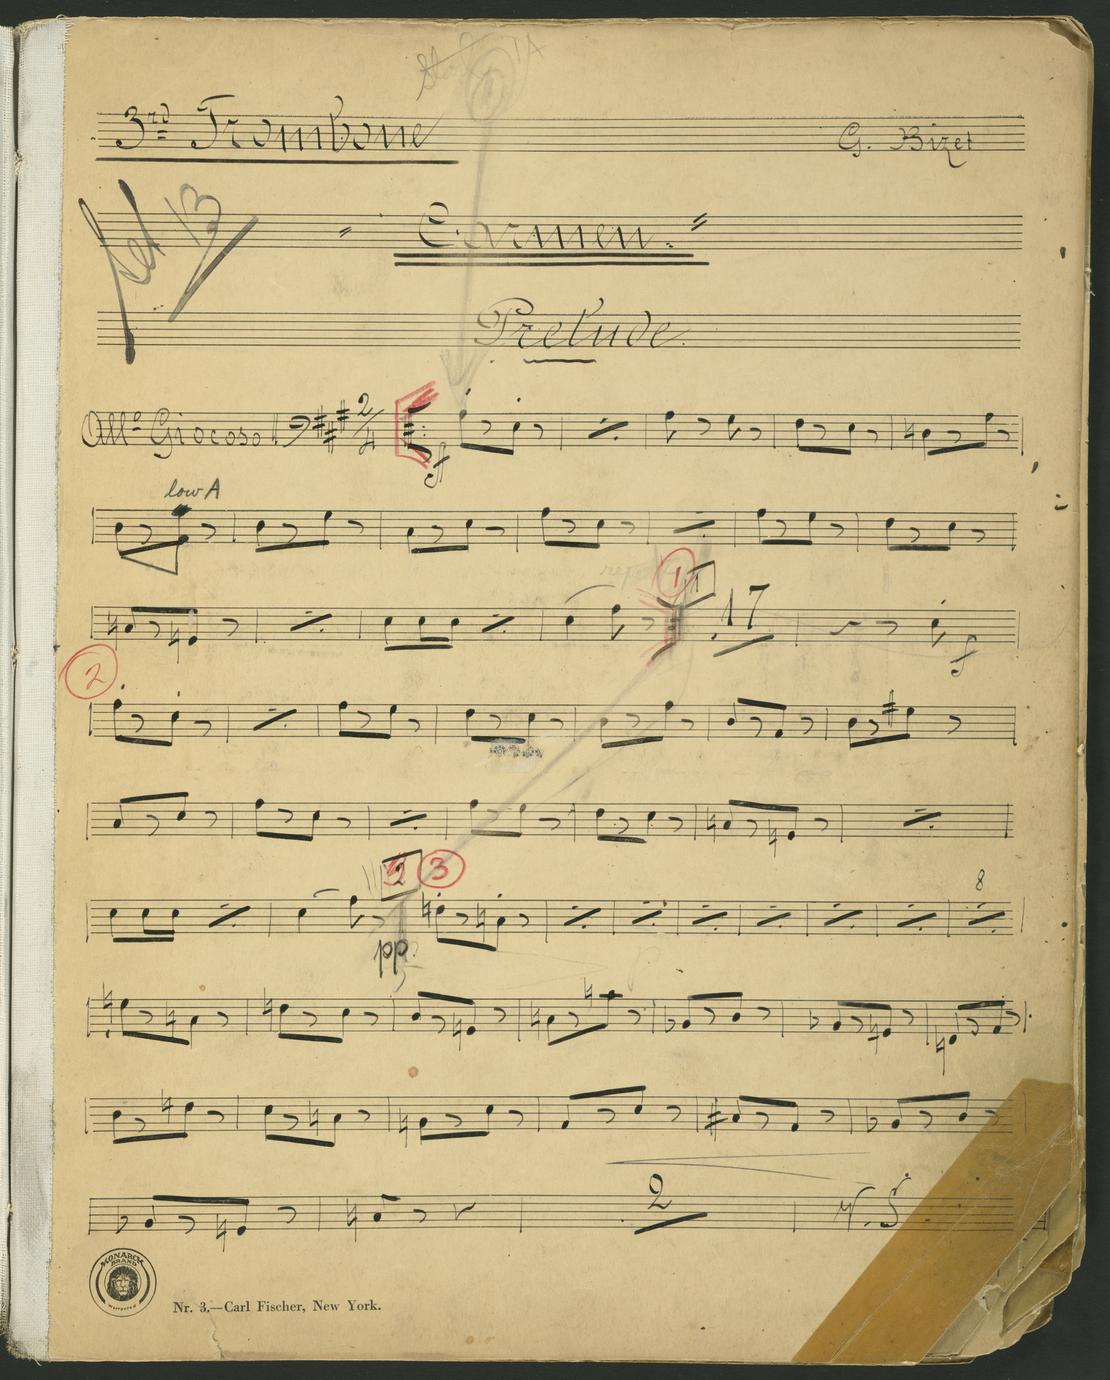 3rd Trombone
G. Bizet
"Carmen."
Prelude.
Allo Giocoso
2/4
ff
low A
1
17
f
2
2 3
pp.
8
2
V. S.
MONARCH BRAND
WARRANTED
Nr. 3.—Carl Fischer, New York.